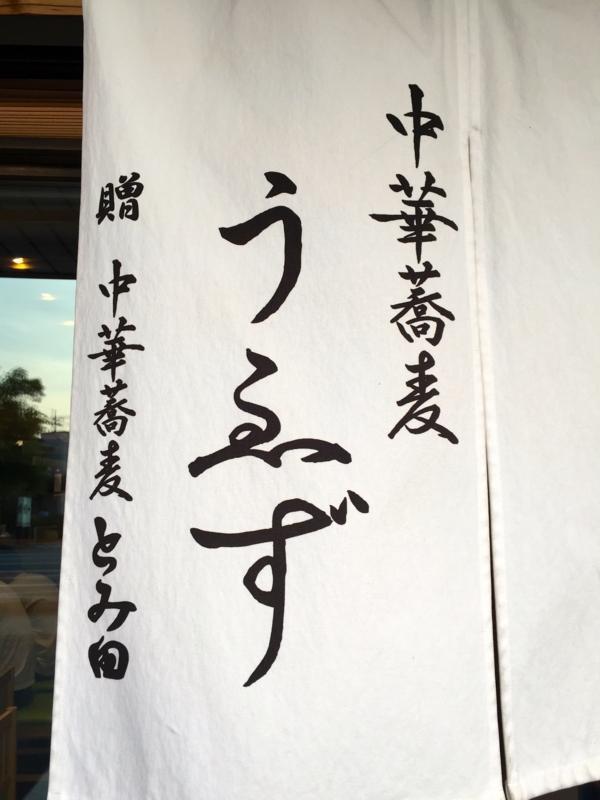 中華蕎麦
うゑず
贈 中華蕎麦 とみ田